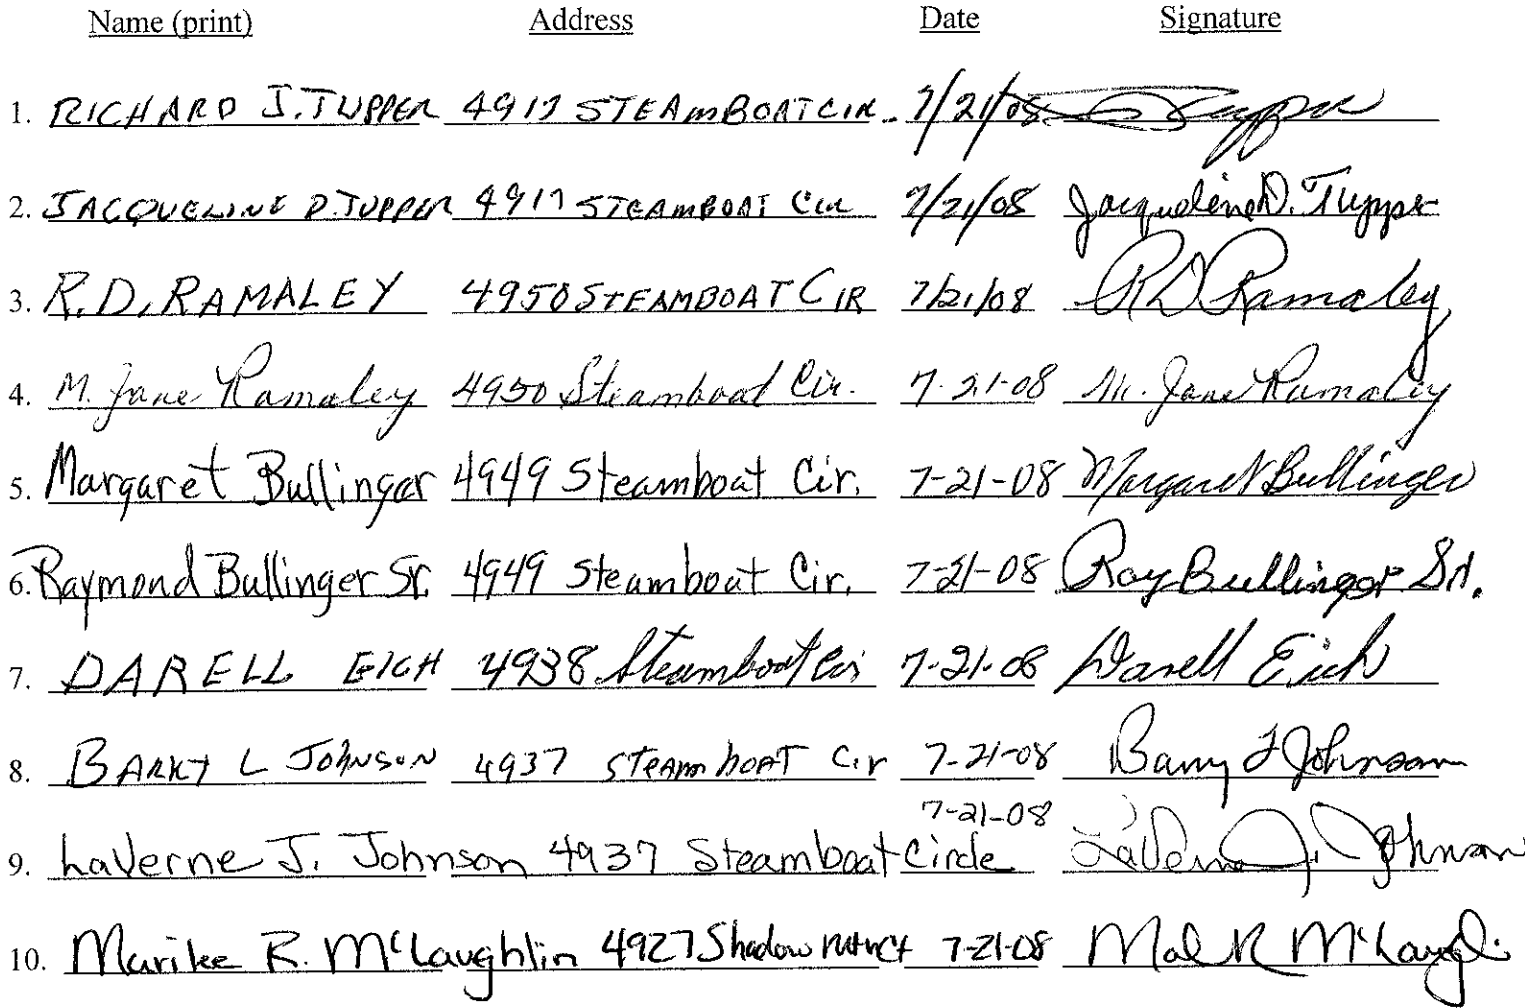 Name (print) Address Date Signature
1. RICHARD J. TUPPER 4917 STEAMBOAT CIR. 7/21/08 Tupper
2. JACQUELINE D. TUPPER 4917 STEAMBOAT Cir 7/21/08 Jacqueline D. Tupper
3. R.D. RAMALEY 4950 STEAMBOAT CIR 7/21/08 RD Ramaley
4. M. Jane Ramaley 4950 Steamboat Cir. 7-21-08 M. Jane Ramaley
5. Margaret Bullinger 4949 Steamboat Cir. 7-21-08 Margaret Bullinger
6. Raymond Bullinger Sr. 4949 Steamboat Cir. 7-21-08 Ray Bullinger Sr.
7. DARELL EICH 4938 Steamboat Cir 7-21-08 Darell Eich
8. BARRY L JOHNSON 4937 STEAMBOAT Cir 7-21-08 Barry L Johnson
7-21-08
9. LaVerne J. Johnson 4937 Steamboat Circle LaVerne J. Johnson
10. Marike R. McLaughlin 4927 Shadow Ct 7-21-08